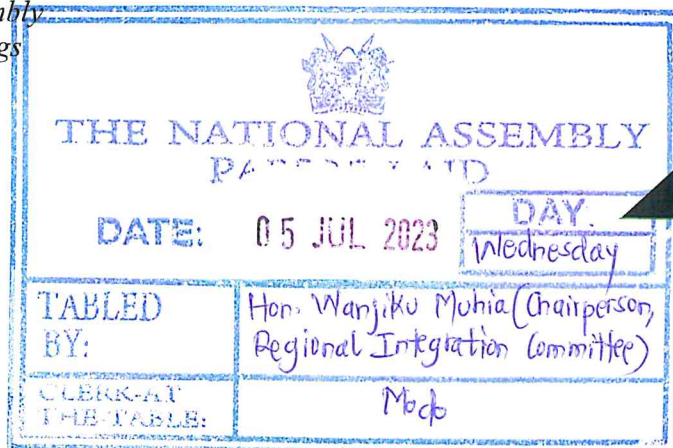 THE NATIONAL ASSEMBLY
PAPERS LAID
DATE: 05 JUL 2023
DAY.
Wednesday
TABLED BY:
Hon. Wanjiku Muhia (Chairperson,
Regional Integration Committee)
CLERK-AT
THE-TABLE: